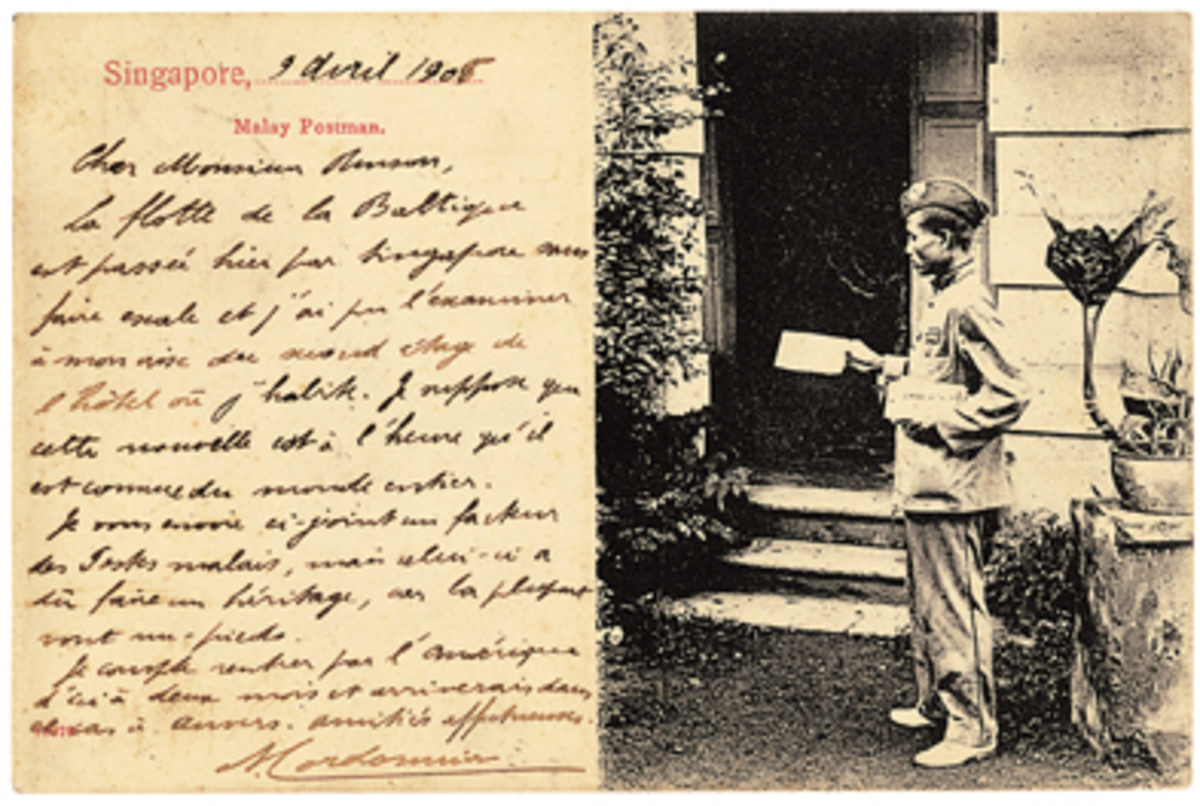 Singapore, 9 Avril 1905
Malay Postman.
Cher Monsieur
La flotte de la Baltique
est passée hier par Singapore sans
faire escale et j'ai pu l'examiner
à mon aise du second étage de
l'hôtel où j'habite. Je suppose que
cette nouvelle est à l'heure qu'il
est connue du monde entier.
Je vous envoie ci-joint un facteur
des Postes malais, mais celui-ci a
dû faire un héritage, car la plupart
vont nu-pieds.
Je compte rentrer par l'Amérique
d'ici à deux mois et arriverais dans
à Anvers. Amitiés affectueuses.